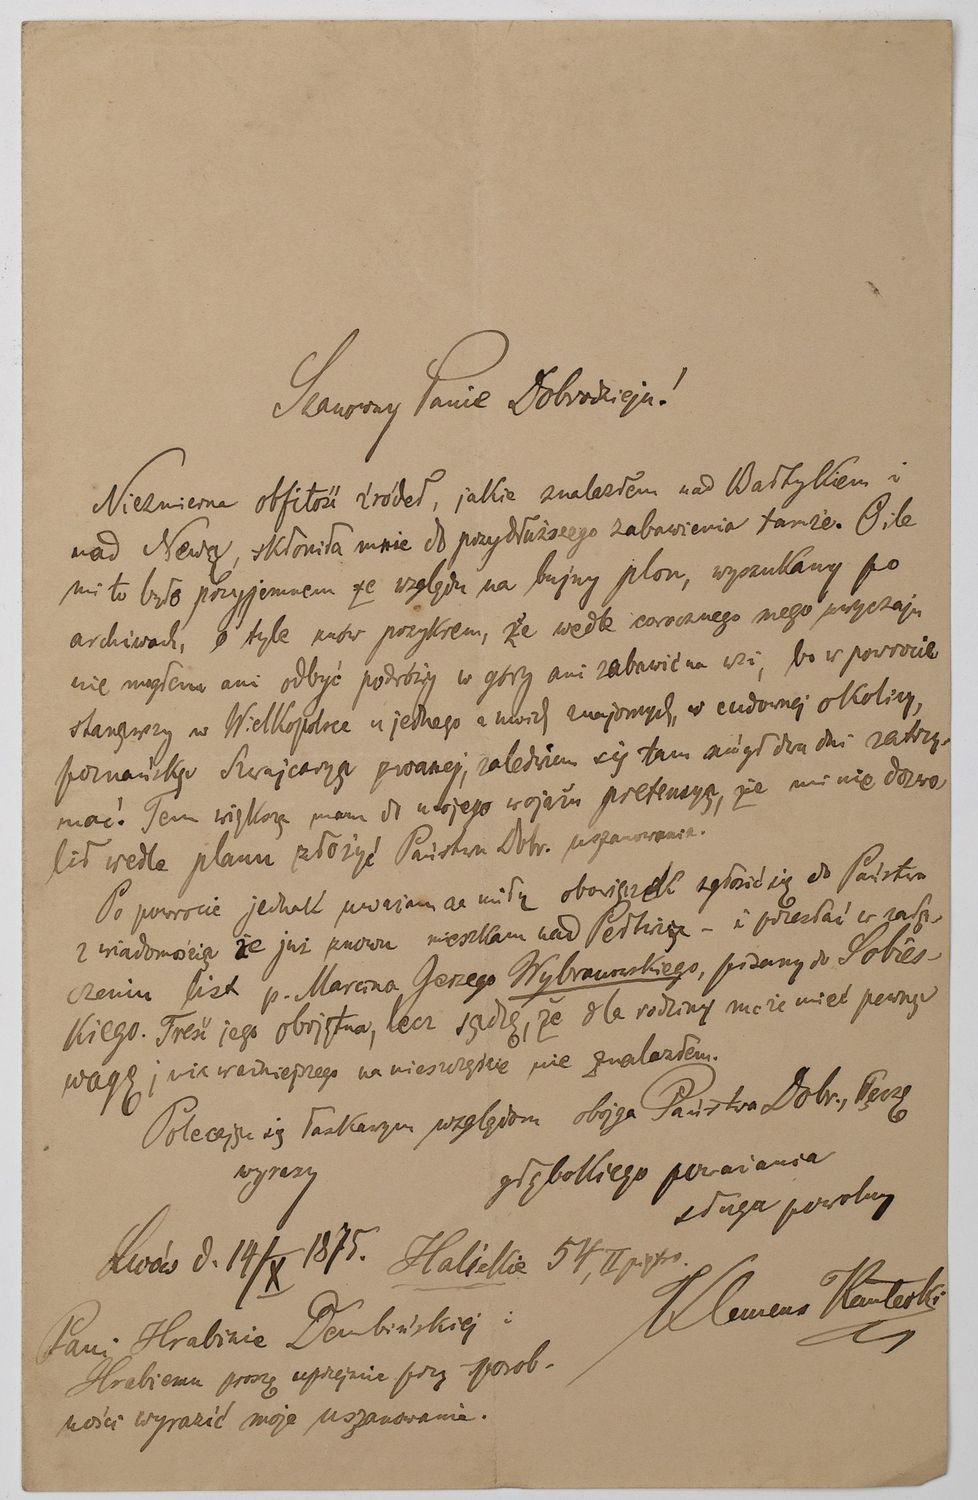 Szanowny Panie Dobrodzieju!
Niezmierna obfitość źródeł, jakie znalazłem nad Bałtykiem i
nad Newą, skłoniła mnie do przydłuższego zabawienia tamże. O ile
mi to było przyjemnem ze względu na bujny plon, wyszukany po
archiwach, o tyle znów przykrem, że wedle corocznego mego zwyczaju
nie mogłem ani odbyć podróży w góry ani zabawić na wsi, bo w powrocie
stanąwszy w Wielkopolsce u jednego z moich znajomych, w cudownej okolicy,
poznańską Szwajcaryą zwanej, zaledwiem się tam mógł dwa dni zatrzy-
mać. Tem większą mam do mojego wojażu pretensyą, że mi nie dozwo
lił wedle planu złożyć Państwu Dobr. uszanowania.
Po powrocie jednak uważam za miły obowiązek zgłosić się do Państwa
z wiadomością że już znowu mieszkam nad Pełtwią – i przesłać w załą-
czeniu list p. Marcina Jerzego Wybranowskiego, pisany do Sobies-
kiego. Treść jego obojętna, lecz sądzę, że dla rodziny może mieć pewną
wagę; nic ważniejszego na nieszczęście nie znalazłem.
Polecając się łaskawym względom obojga Państwa Dobr., łączę
wyrazy
głębokiego poważania
sługa powolny
Lwów d. 14/X 1875. Halickie 54, II piętro.
Klemens Kantecki
Pani Hrabinie Dembińskiej i
Hrabiemu proszę uprzejmie przy sposob-
ności wyrazić moje uszanowanie.